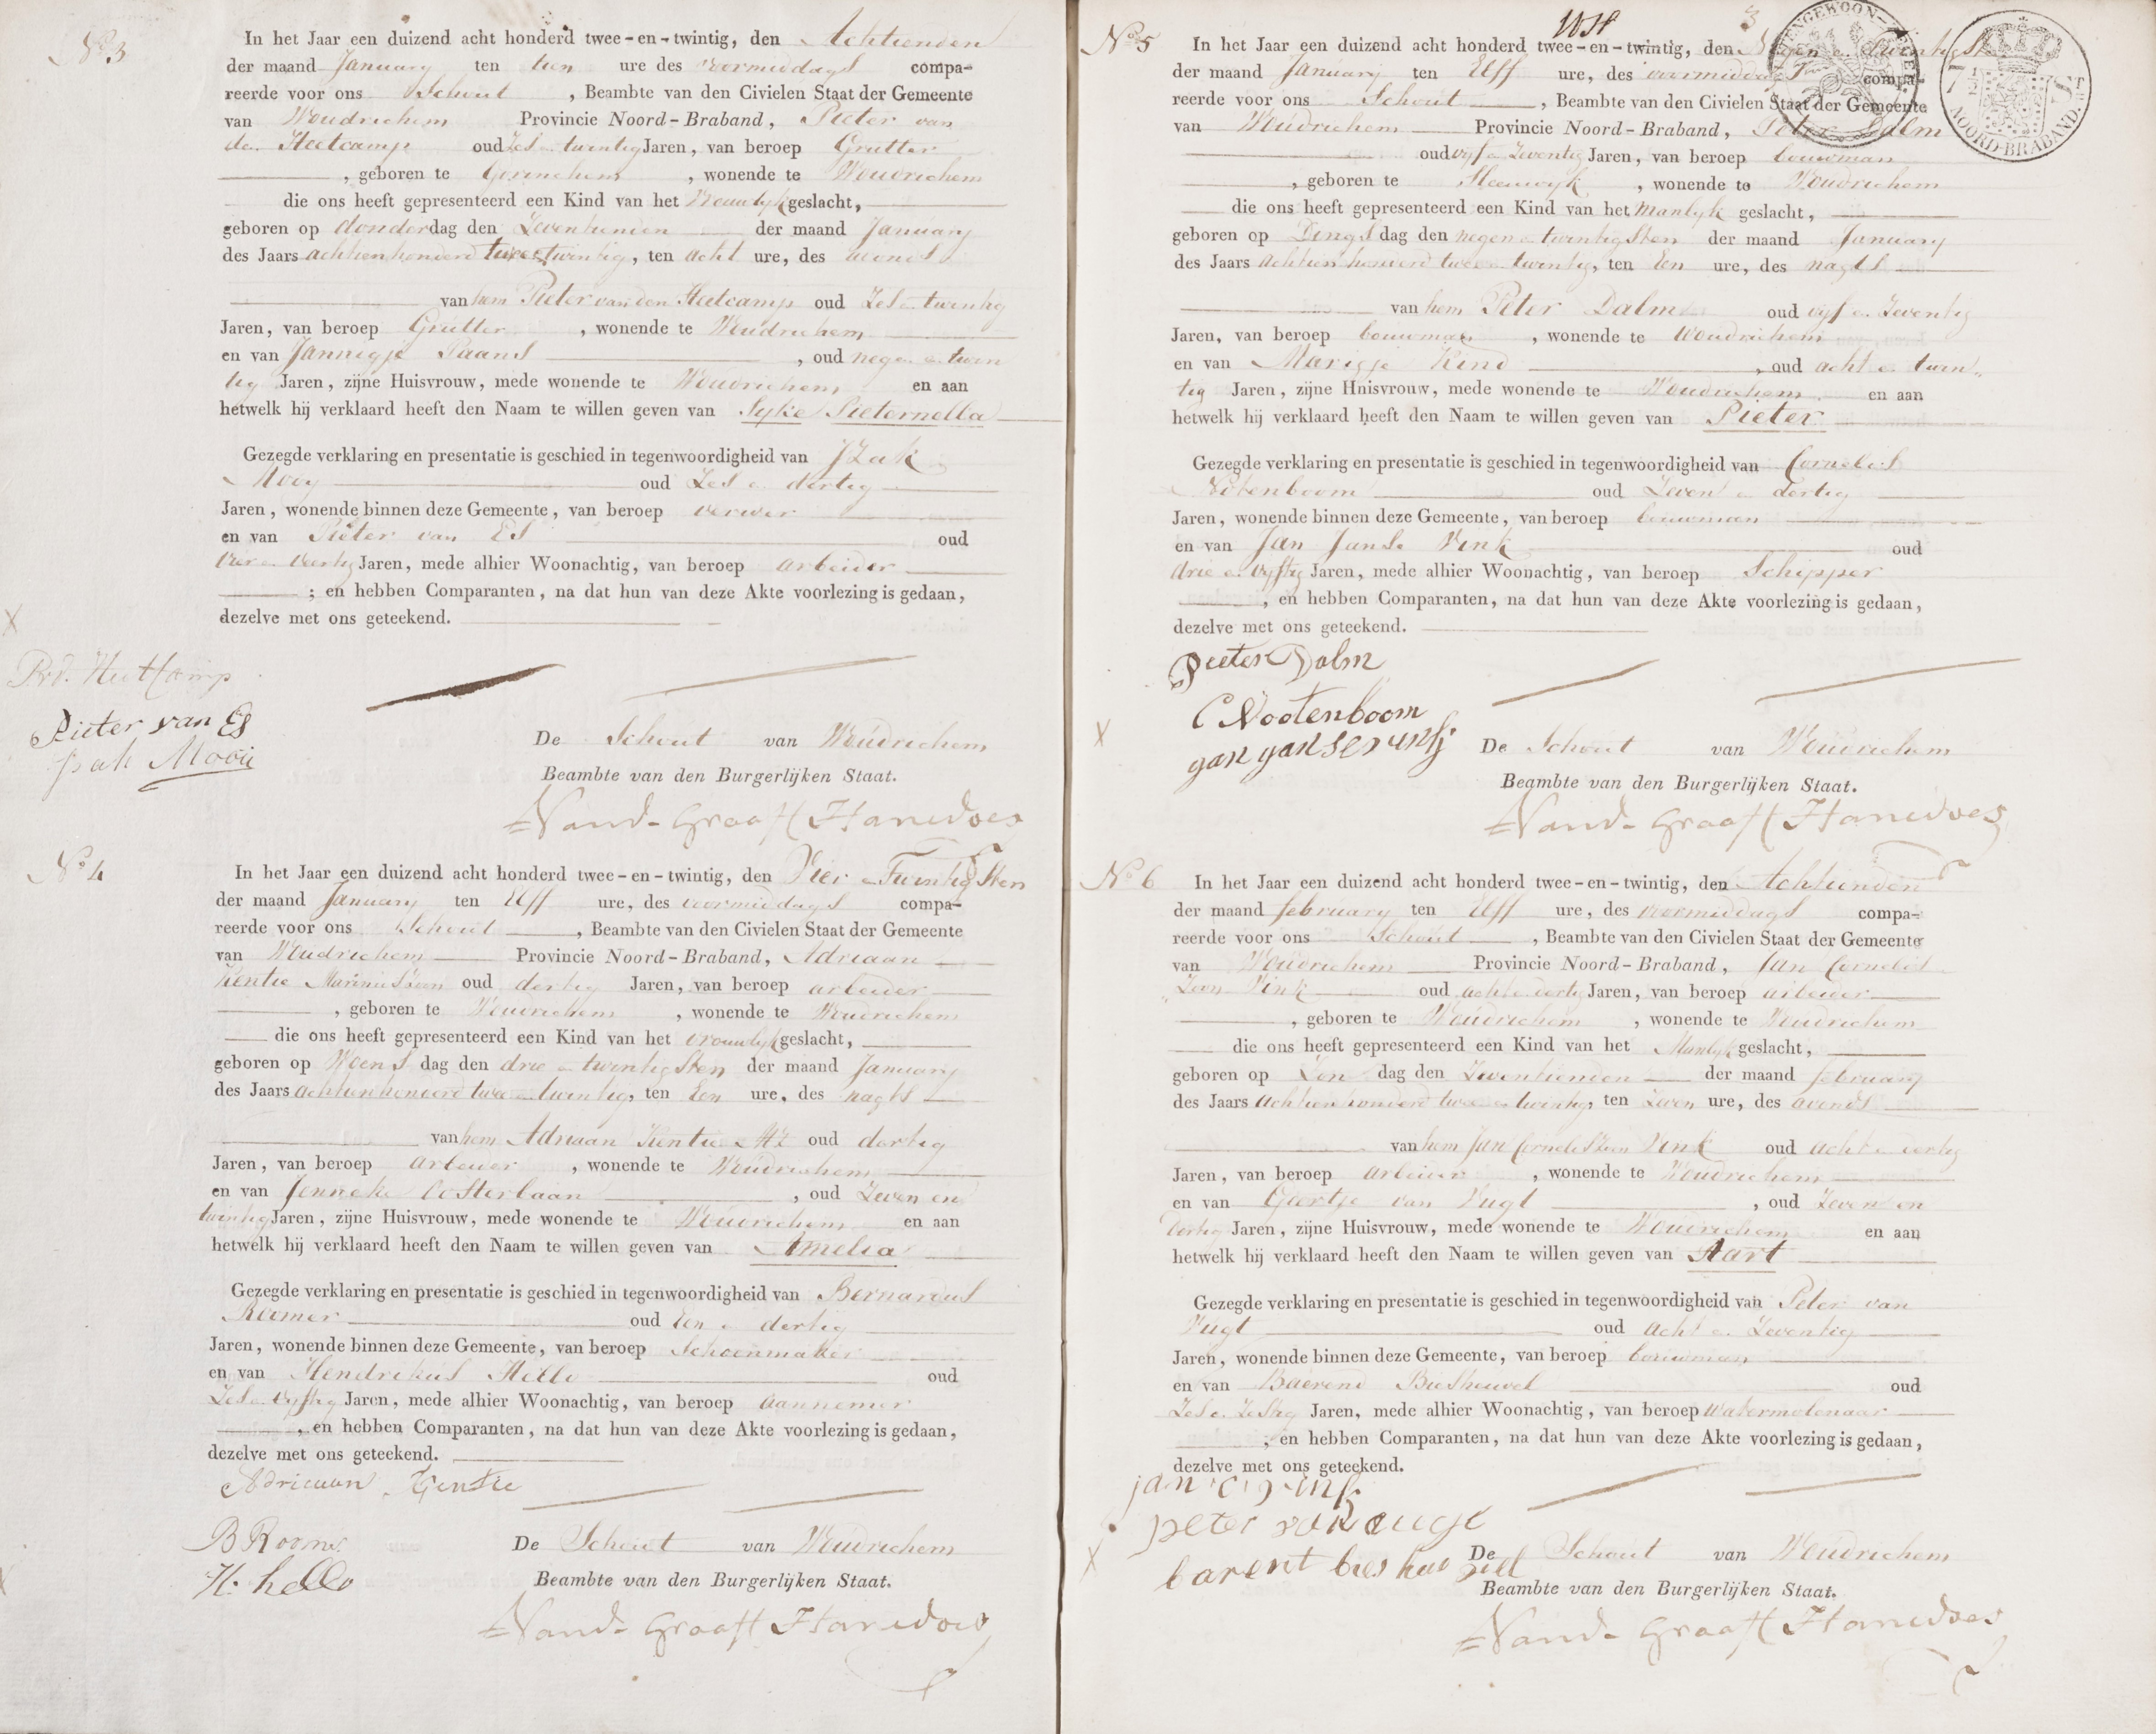 No 3
In het Jaar een duizend acht honderd twee-en-twintig, den Achtienden
der maand January ten tien ure des voormiddags compa-
reerde voor ons Schout , Beambte van den Civielen Staat der Gemeente
van Woudrichem Provincie Noord-Braband, Pieter van
de Heetcamp oud Zes en twintig Jaren, van beroep Grutter
, geboren te Gorinchem , wonende te Woudrichem
die ons heeft gepresenteerd een Kind van het Vrouwlyk geslacht,
geboren op donderdag den Zeventienden der maand January
des Jaars achttienhonderd twee en twintig, ten acht ure, des avonds
van hem Pieter van den Heetcamp oud Zes en twintig
Jaren, van beroep Grutter , wonende te Woudrichem
en van Jannigje Paans , oud negen en twin
tig Jaren, zijne Huisvrouw, mede wonende te Woudrichem en aan
hetwelk hij verklaard heeft den Naam te willen geven van Syke Pieternella
Gezegde verklaring en presentatie is geschied in tegenwoordigheid van JZak
Mooy oud Zes en dertig
Jaren, wonende binnen deze Gemeente, van beroep verwer
en van Pieter van Es oud
vier en veertig Jaren, mede alhier Woonachtig, van beroep arbeider
; en hebben Comparanten, na dat hun van deze Akte voorlezing is gedaan,
dezelve met ons geteekend.
Pr. vd. HeetCamp
Pieter van Es
Mooij
De Schout van Woudrichem
Beambte van den Burgerlijken Staat.
Vand Graaff Hanedoes
No 4
In het Jaar een duizend acht honderd twee-en-twintig, den Vier en Twintigsten
der maand January ten Elff ure, des voormiddags compa-
reerde voor ons Schout , Beambte van den Civielen Staat der Gemeente
van Woudrichem Provincie Noord-Braband, Adriaan
Kentie Marinuszoon oud dertig Jaren, van beroep arbeider
, geboren te Woudrichem , wonende te Woudrichem
die ons heeft gepresenteerd een Kind van het vrouwlyk geslacht,
geboren op Woensdag den drie en twintigsten der maand January
des Jaars achttienhonderd twee en twintig, ten Een ure, des nagts
van hem Adriaan Kentie MZ oud dertig
Jaren, van beroep arbeider , wonende te Woudrichem
en van Jenneke Oosterlaan , oud Zeven en
twintig Jaren, zijne Huisvrouw, mede wonende te Woudrichem en aan
hetwelk hij verklaard heeft den Naam te willen geven van Amelia
Gezegde verklaring en presentatie is geschied in tegenwoordigheid van Bernardus
Roomer oud Een en dertig
Jaren, wonende binnen deze Gemeente, van beroep Schoenmaker
en van Hendrikus Hello oud
Zes en vyftig Jaren, mede alhier Woonachtig, van beroep aannemer
, en hebben Comparanten, na dat hun van deze Akte voorlezing is gedaan,
dezelve met ons geteekend.
Adriaan Kentie
B Roomer
H. hello
De Schout van Woudrichem
Beambte van den Burgerlijken Staat.
Vand Graaff Hanedoes
3
NOORD-BRABAND
No 5
In het Jaar een duizend acht honderd twee-en-twintig, den Negen en Twintigsten
der maand January ten Elff ure, des voormiddags compa-
reerde voor ons Schout , Beambte van den Civielen Staat der Gemeente
van Woudrichem Provincie Noord-Braband, Peter Dalm
oud vyf en Zeventig Jaren, van beroep bouwman
, geboren te Sleeuwyk , wonende te Woudrichem
die ons heeft gepresenteerd een Kind van het Manlyk geslacht,
geboren op Dingsdag den negen en twintigsten der maand January
des Jaars achttienhonderd twee en twintig, ten Een ure, des nagts
van hem Peter Dalm oud vyf en Zeventig
Jaren, van beroep bouwman , wonende te Woudrichem
en van Marigje Kind , oud acht en twin„
tig Jaren, zijne Hnisvrouw, mede wonende te Woudrichem en aan
hetwelk hij verklaard heeft den Naam te willen geven van Pieter
Gezegde verklaring en presentatie is geschied in tegenwoordigheid van Cornelis
Notenboom oud Zeven en dertig
Jaren, wonende binnen deze Gemeente, van beroep bouwman
en van Jan Janse Vink oud
drie en vyftig Jaren, mede alhier Woonachtig, van beroep Schipper
, en hebben Comparanten, na dat hun van deze Akte voorlezing is gedaan,
dezelve met ons geteekend.
Pieter Dalm
C Nootenboom
jan janse vink
De Schout van Woudrichem
Beambte van den Burgerlijken Staat.
Vand Graaff Hanedoes
No 6
In het Jaar een duizend acht honderd twee-en-twintig, den Achtienden
der maand february ten Elff ure, des voormiddags compa-
reerde voor ons Schout , Beambte van den Civielen Staat der Gemeente
van Woudrichem Provincie Noord-Braband, Jan Cornelis
„Zoon Vink oud acht en dertig Jaren, van beroep arbeider
, geboren te Woudrichem , wonende te Woudrichem
die ons heeft gepresenteerd een Kind van het Manlyk geslacht,
geboren op Zondag den Zeventienden der maand february
des Jaars achttienhonderd twee en twintig, ten Zeven ure, des avonds
van hem Jan CornelisZoon Vink oud acht en dertig
Jaren, van beroep arbeider , wonende te Woudrichem
en van Geertje van Vugt , oud Zeven en
dertig Jaren, zijne Huisvrouw, mede wonende te Woudrichem en aan
hetwelk hij verklaard heeft den Naam te willen geven van Aart
Gezegde verklaring en presentatie is geschied in tegenwoordigheid van Peter van
Vugt oud acht en Zeventig
Jaren, wonende binnen deze Gemeente, van beroep bouwman
en van Baerend Biesheuvel oud
Zes en Zestig Jaren, mede alhier Woonachtig, van beroep watermolenaar
, en hebben Comparanten, na dat hun van deze Akte voorlezing is gedaan,
dezelve met ons geteekend.
jan c vink
peter van vugt
barent bieshuvel
De Schout van Woudrichem
Beambte van den Burgerlijken Staat.
Vand Graaff Hanedoes